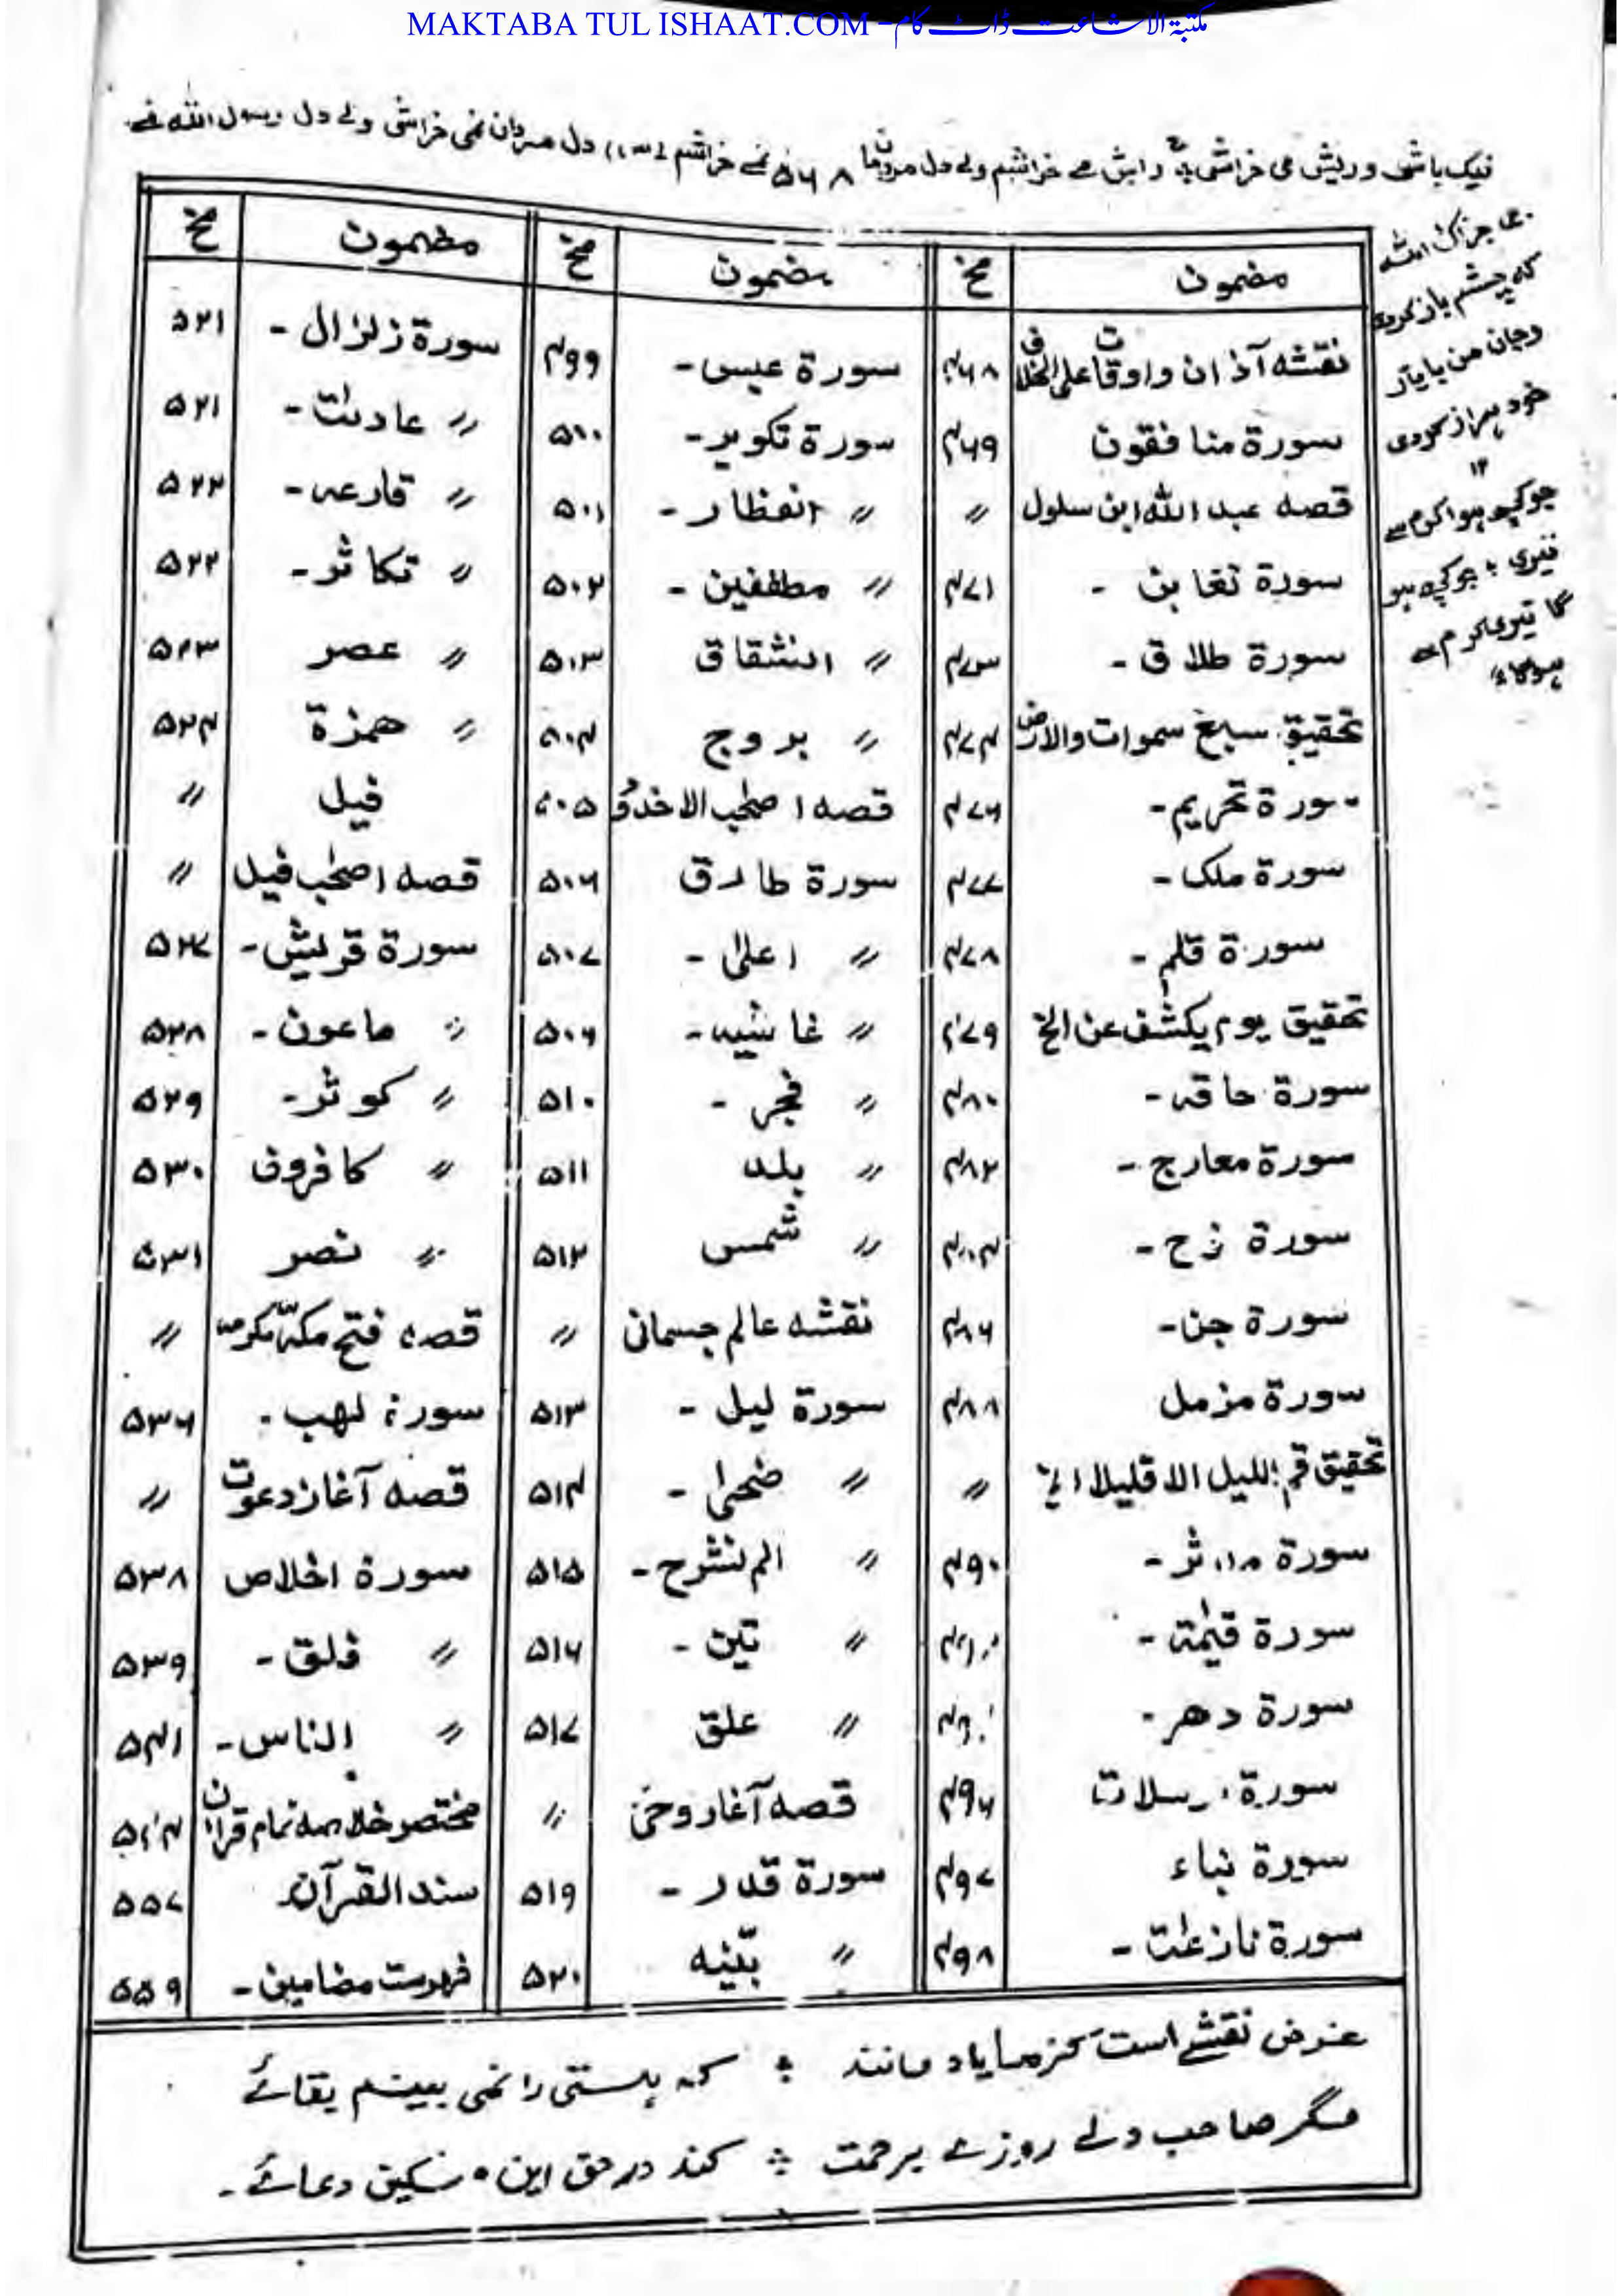 MAKTABA TUL ISHAAT.COM - مکتبۃ الاشاعت ڈاٹ کام
نیک باشی و ریش می خراشی ریش مے خراشم ولے دل ۵۶۸ نمے خراشم دل نمی خراشی ولے دل رسول اللہ
جزاک اللہ
کہ چشم باز کردی
و جان من با یار
خود ہمراز کردی
۱۲
جو کچھ ہوا کرم سے
تیری ؛ جو کچھ ہو
گا تیری کرم سے
ہوگا
مضمون صخ مضمون صخ مضمون صخ
نقشہ آذان واوقات علی ۴۶۸ سورۃ عبس - ۴۹۹ سورۃ زلزال - ۵۲۱
سورۃ منافقون ۴۶۹ سورۃ تکویر - ۵۰۰ 〃 عادیٰت - ۵۲۱
قصہ عبد اللہ ابن سلول 〃 〃 انفطار - ۵۰۱ 〃 قارعہ - ۵۲۲
سورۃ تغابن - ۴۷۱ 〃 مطففین - ۵۰۲ 〃 تکاثر - ۵۲۲
سورۃ طلاق - ۴۷۳ 〃 انشقاق ۵۰۳ 〃 عصر ۵۲۳
تحقیق سبع سموات والارض ۴۷۴ 〃 بروج ۵۰۴ 〃 ھمزۃ ۵۲۴
سورۃ تحریم - ۴۷۶ قصہ اصحٰب الاخدود ۵۰۵ فیل 〃
سورۃ ملک - ۴۷۷ سورۃ طارق ۵۰۶ قصہ اصحٰب فیل 〃
سورۃ قلم - ۴۷۸ 〃 اعلیٰ - ۵۰۷ سورۃ قریش - ۵۲۷
تحقیق یوم یکشف عن الخ ۴۷۹ 〃 غاشیہ - ۵۰۹ 〃 ماعون - ۵۲۸
سورۃ حاقہ - ۴۸۰ 〃 فجر - ۵۱۰ 〃 کوثر - ۵۲۹
سورۃ معارج - ۴۸۲ 〃 بلد ۵۱۱ 〃 کافرون ۵۳۰
سورۃ نوح - ۴۸۴ 〃 شمس ۵۱۲ 〃 نصر ۵۳۱
سورۃ جن - ۴۸۶ نقشہ عالم جسمانی 〃 قصہ فتح مکہ مکرمہ 〃
سورۃ مزمل ۴۸۸ سورۃ لیل - ۵۱۳ سورۃ لھب - ۵۳۶
تحقیق قم اللیل الا قلیلا الخ 〃 〃 ضحیٰ - ۵۱۴ قصہ آغاز دعوت 〃
سورۃ مدثر - ۴۹۰ 〃 الم نشرح - ۵۱۵ سورۃ اخلاص ۵۳۸
سورۃ قیٰمۃ - 〃 تین - ۵۱۶ 〃 فلق - ۵۳۹
سورۃ دھر - 〃 علق ۵۱۷ 〃 الناس - ۵۴۱
سورۃ مرسلات ۴۹۶ قصہ آغاز وحی 〃 مختصر خلاصہ تمام قرآن
سورۃ نباء ۴۹۷ سورۃ قدر - ۵۱۹ سند القرآن ۵۵۷
سورۃ نازعٰت - ۴۹۸ 〃 بیّنہ ۵۲۰ فہرست مضامین - ۵۵۹
غرض نقشے است کز ما یاد ماند ؛ کہ ہستی را نمی بینم بقائے
مگر صاحب دلے روزے برحمت ؛ کند در حق این مسکین دعائے -